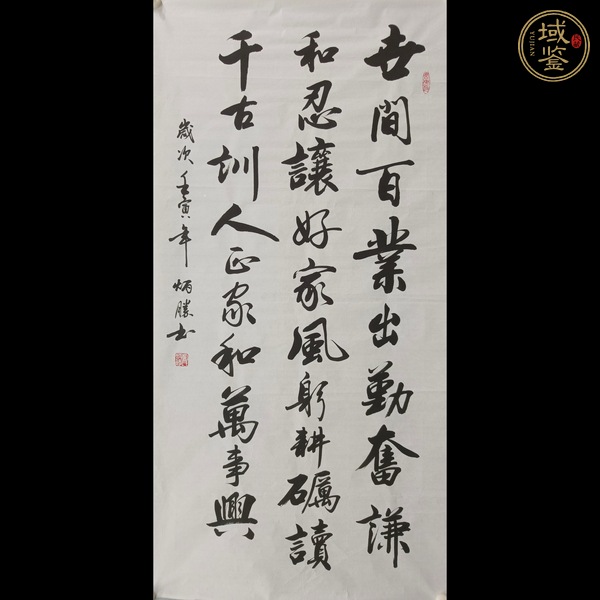 世間百業出勤奮謙
和忍讓好家風躬耕礪讀
千古訓人正家和萬事興
歲次壬寅年炳勝书
域鉴
YUJIAN